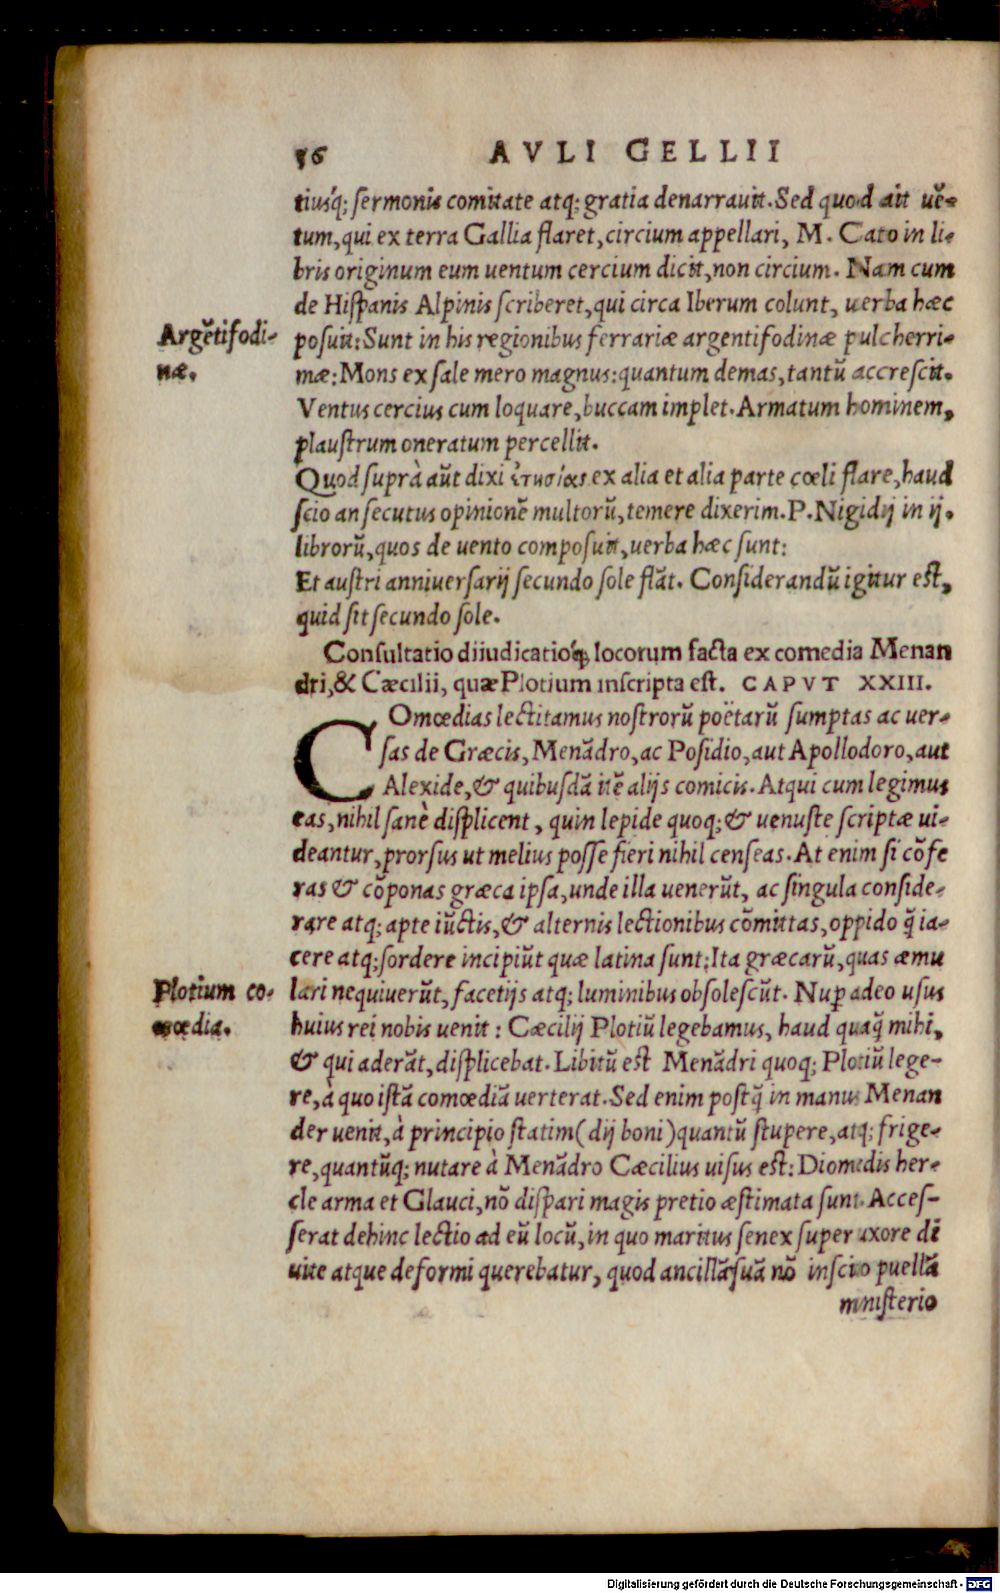 56 AVLI GELLII
tiusq́; sermonis comitate atq; gratia denarrauit. Sed quod ait uẽ-
tum, qui ex terra Gallia flaret, circium appellari, M. Cato in li-
bris originum eum uentum cercium dicit, non circium. Nam cum
de Hispanis Alpinis scriberet, qui circa Iberum colunt, uerba hæc
Argẽtifodi-
næ.
posuit: Sunt in his regionibus ferrariæ argentifodinæ pulcherri-
mæ: Mons ex sale mero magnus: quantum demas, tantũ accrescit.
Ventus cercius cum loquare, buccam implet. Armatum hominem,
plaustrum oneratum percellit.
Quod suprà aũt dixi ἐτησίας ex alia et alia parte cœli flare, haud
scio an secutus opinionẽ multorũ, temere dixerim. P. Nigidij in ij.
librorũ, quos de uento composuit, uerba hæc sunt:
Et austri anniuersarij secundo sole flãt. Considerandũ igitur est,
quid sit secundo sole.
Consultatio diiudicatioq́; locorum facta ex comedia Menan
dri, & Cæcilii, quæ Plotium inscripta est. CAPVT XXIII.
COmœdias lectitamus nostrorũ poëtarũ sumptas ac uer-
sas de Græcis, Menãdro, ac Posidio, aut Apollodoro, aut
Alexide, & quibusdã itẽ alijs comicis. Atqui cum legimus
eas, nihil sanè displicent, quin lepide quoq; & uenuste scriptæ ui-
deantur, prorsus ut melius posse fieri nihil censeas. At enim si cõfe
ras & cõponas græca ipsa, unde illa uenerũt, ac singula conside-
rare atq; apte iũctis, & alternis lectionibus cõmittas, oppido q̃ ia-
cere atq; sordere incipiũt quæ latina sunt: Ita græcarũ, quas æmu
Plotium co-
mœdia.
lari nequiuerũt, facetijs atq; luminibus obsolescũt. Nuꝑ adeo usus
huius rei nobis uenit: Cæcilij Plotiũ legebamus, haud quaq̃ mihi,
& qui aderãt, displicebat. Libitũ est Menãdri quoq; Plotiũ lege-
re, à quo istã comœdiã uerterat. Sed enim postq̃ in manus Menan
der uenit, à principio statim (dij boni) quantũ stupere, atq; frige-
re, quantũq; nutare à Menãdro Cæcilius uisus est: Diomedis her-
cle arma et Glauci, nõ dispari magis pretio æstimata sunt. Acces-
serat dehinc lectio ad eũ locũ, in quo maritus senex super uxore di
uite atque deformi querebatur, quod ancillã suã nõ inscito puellã
ministerio
Digitalisierung gefördert durch die Deutsche Forschungsgemeinschaft - DFG